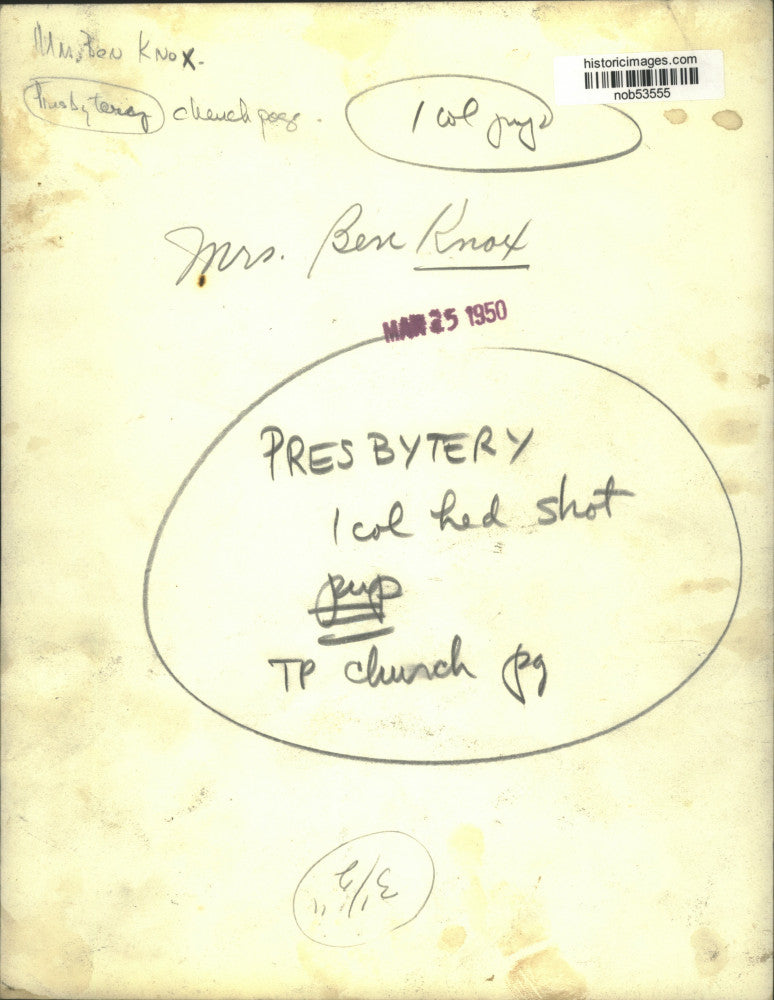 Mrs. Ben Knox.
historicimages.com
nob53555
Presbytery church page.
1 col
Mrs. Ben Knox
MAR 25 1950
PRESBYTERY
1 col hed shot
TP church pg